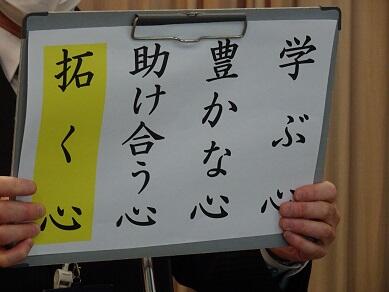 学ぶ心
豊かな心
助け合う心
拓く心